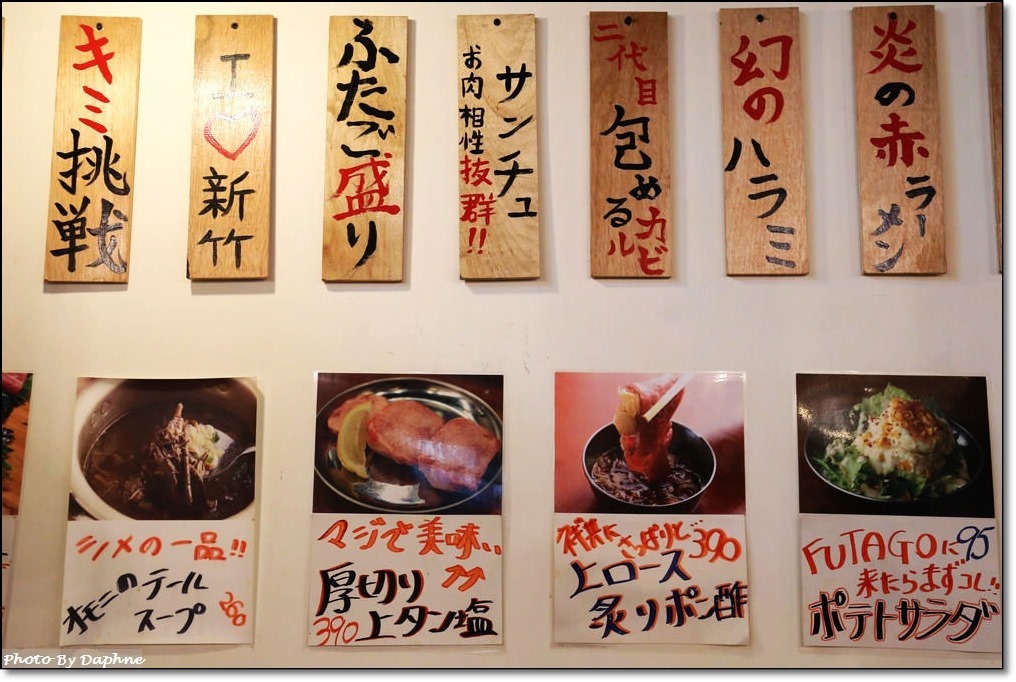 キミ
挑戦
I
♡
新
竹
ふたご盛り
サンチュ
お肉相性抜群!!
二代目
包める
カビル
幻の
ハラミ
炎の赤
ラーメン
シメの一品!!
オモニのテール
スープ
マジで美味
厚切り
390 上タン塩
さっぱりと 390
上ロース
炙りポン酢
FUTAGOに 95
来たらまずコレ!!
ポテトサラダ
Photo By Daphne